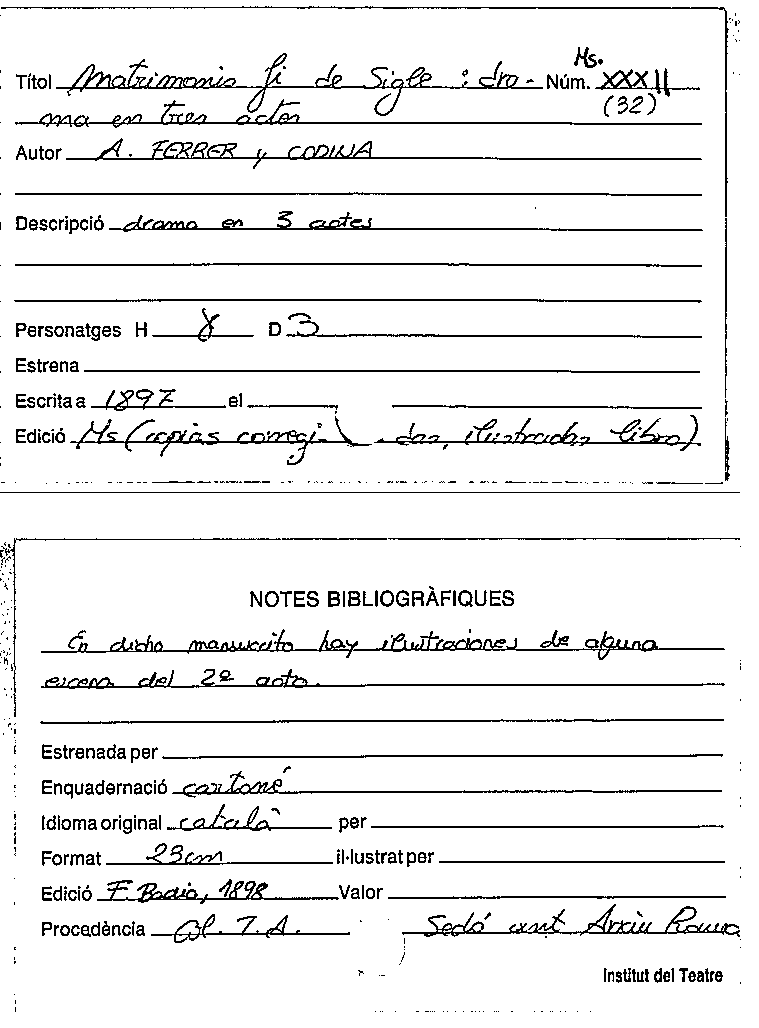 Ms.
Títol Matrimonio fi de Sigle : dra- Núm. XXXII
ma en tres actes (32)
Autor A. FERRER y CODINA
Descripció drama en 3 actes
Personatges H 8 D 3
Estrena
Escrita a 1897 el
Edició Ms (copias corregi- das, ilustradas libro)
NOTES BIBLIOGRÀFIQUES
En dicho manuscrito hay ilustraciones de alguna
escena del 2º acto.
Estrenada per
Enquadernació cartoné
Idioma original català per
Format 23cm il·lustrat per
Edició F. Badia, 1898 Valor
Procedència Col. T. A. Sedó Arxiu
Institut del Teatre